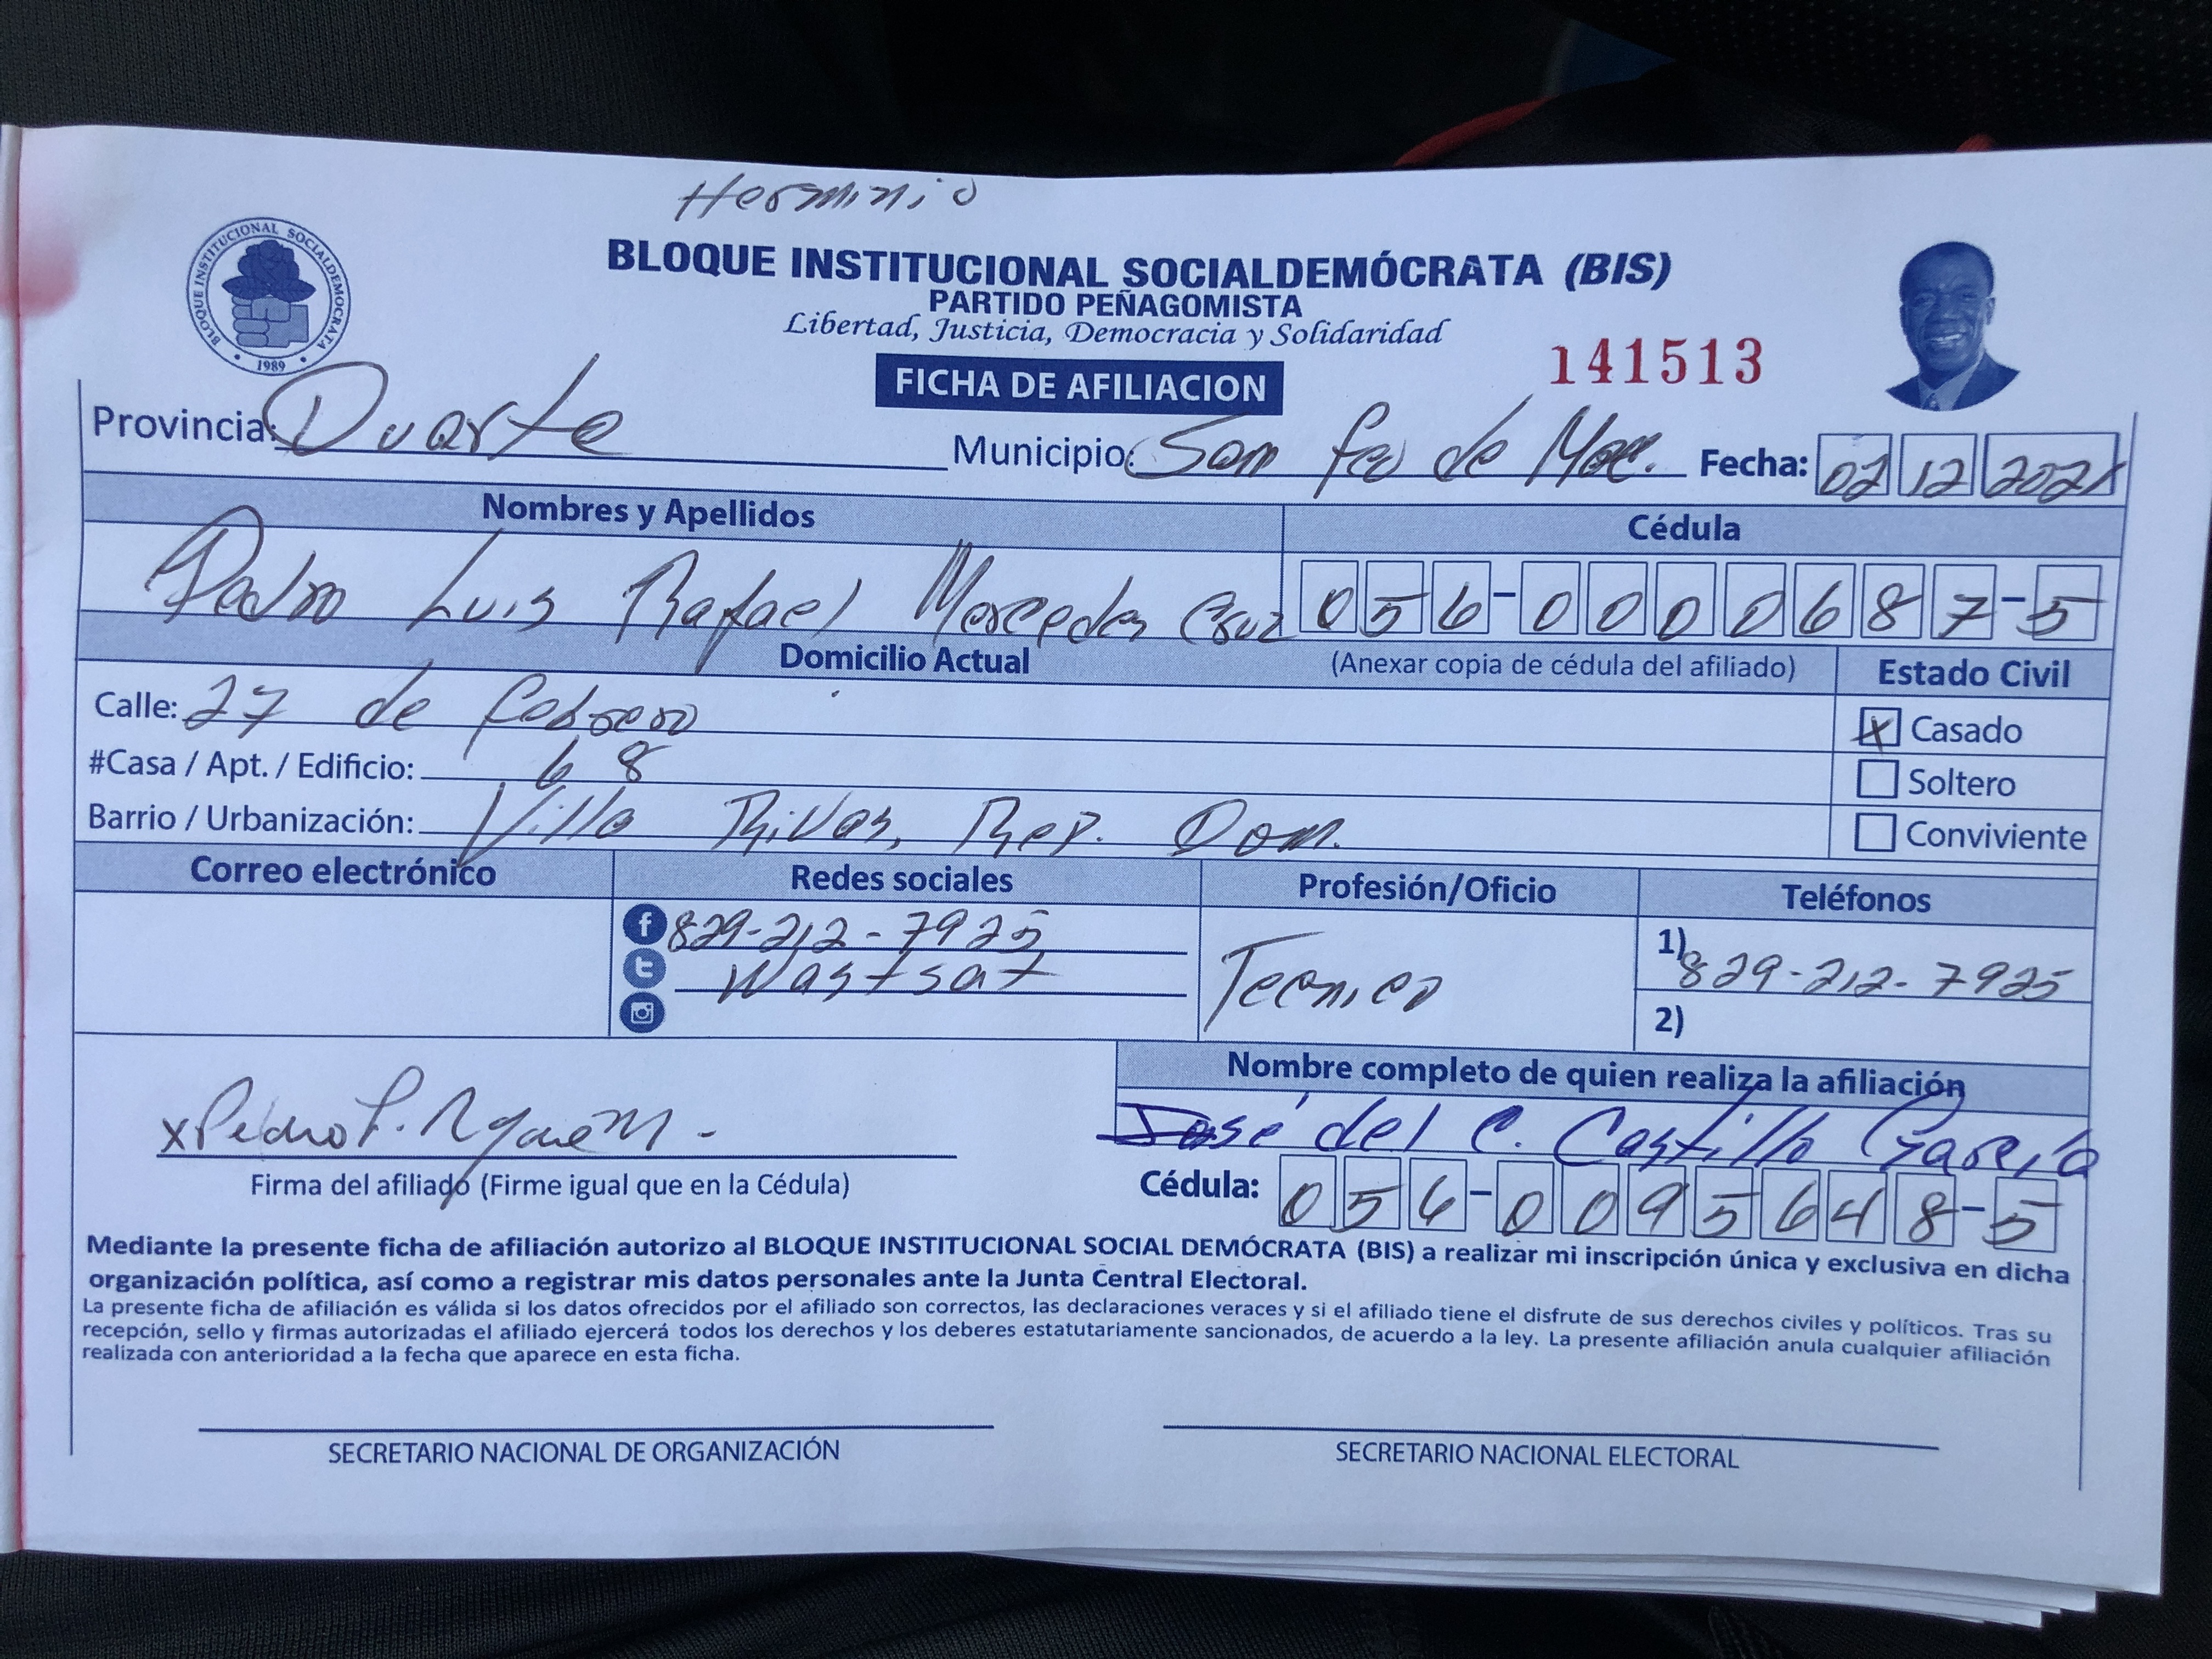 Herminio
BLOQUE INSTITUCIONAL SOCIALDEMÓCRATA (BIS)
PARTIDO PEÑAGOMISTA
Libertad, Justicia, Democracia y Solidaridad
BLOQUE INSTITUCIONAL SOCIALDEMOCRATA
1989
FICHA DE AFILIACION
141513
Provincia: Duarte Municipio: San fco de Mac. Fecha: 02 12 2021
Nombres y Apellidos Cédula
Pedro Luis Rafael Mercedes Cruz 056-0000687-5
Domicilio Actual (Anexar copia de cédula del afiliado) Estado Civil
Calle: 27 de febrero X Casado
#Casa / Apt. / Edificio: 68 Soltero
Barrio / Urbanización: Villa Rivas, Rep. Dom. Conviviente
Correo electrónico Redes sociales Profesión/Oficio Teléfonos
829-212-7925 Tecnico 1) 829-212-7925
Wastsat
2)
Nombre completo de quien realiza la afiliación
José del C. Castillo Garcia
x Pedro L. M.
Firma del afiliado (Firme igual que en la Cédula) Cédula: 056-0095648-5
Mediante la presente ficha de afiliación autorizo al BLOQUE INSTITUCIONAL SOCIAL DEMÓCRATA (BIS) a realizar mi inscripción única y exclusiva en dicha
organización política, así como a registrar mis datos personales ante la Junta Central Electoral.
La presente ficha de afiliación es válida si los datos ofrecidos por el afiliado son correctos, las declaraciones veraces y si el afiliado tiene el disfrute de sus derechos civiles y políticos. Tras su
recepción, sello y firmas autorizadas el afiliado ejercerá todos los derechos y los deberes estatutariamente sancionados, de acuerdo a la ley. La presente afiliación anula cualquier afiliación
realizada con anterioridad a la fecha que aparece en esta ficha.
SECRETARIO NACIONAL DE ORGANIZACIÓN SECRETARIO NACIONAL ELECTORAL